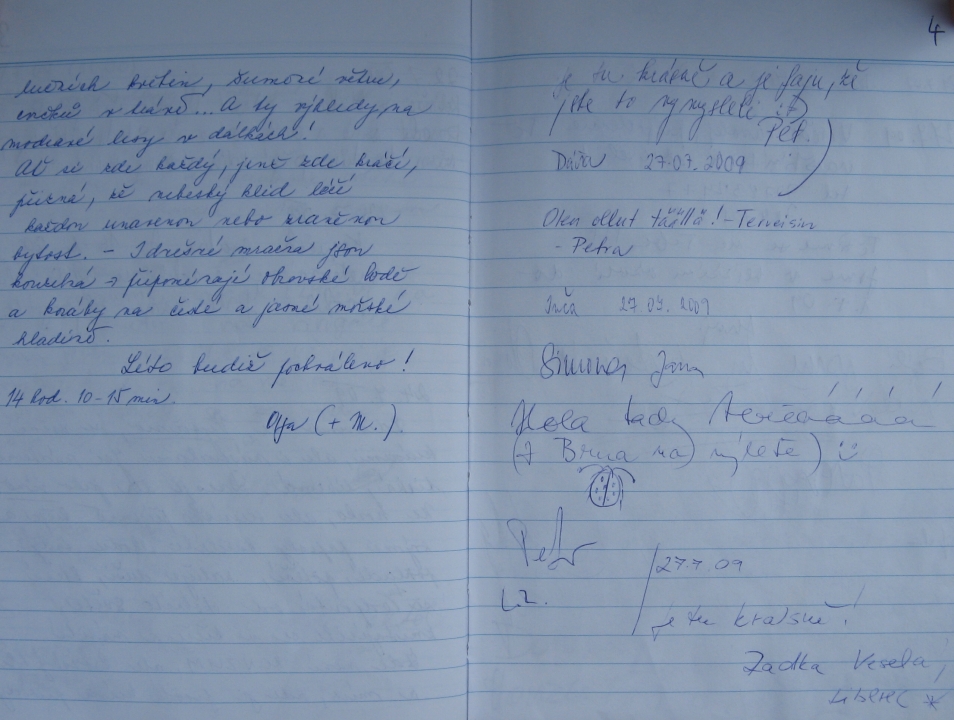 lučních květin, šumění větru,
v trávě... A ty výhledy na
modravé lesy v dálkách!
Ať si zde každý, jenž zde kráčí,
přizná, že nebeský klid léčí
každou unavenou nebo zraněnou
bytost. - I dnešní mračna jsou
kouzelná → připomínají obrovské lodě
a koráby na čisté a jasné mořské
hladině.
Léto budiž pochváleno!
14 hod. 10-15 min.
Olga (+ M.).
4
je tu krásně a je fajn, že
jste to vymysleli :D
Pét.
Dáša 27.07. 2009
Olen ollut täällä! - Terveisin
- Petra
27.07. 2009
Simona, Jana
Hola tady
(z Brna na výletě) :)
Petr
27.7.09
LZ.
je tu krásně!
Radka Veselá,
Liberec *